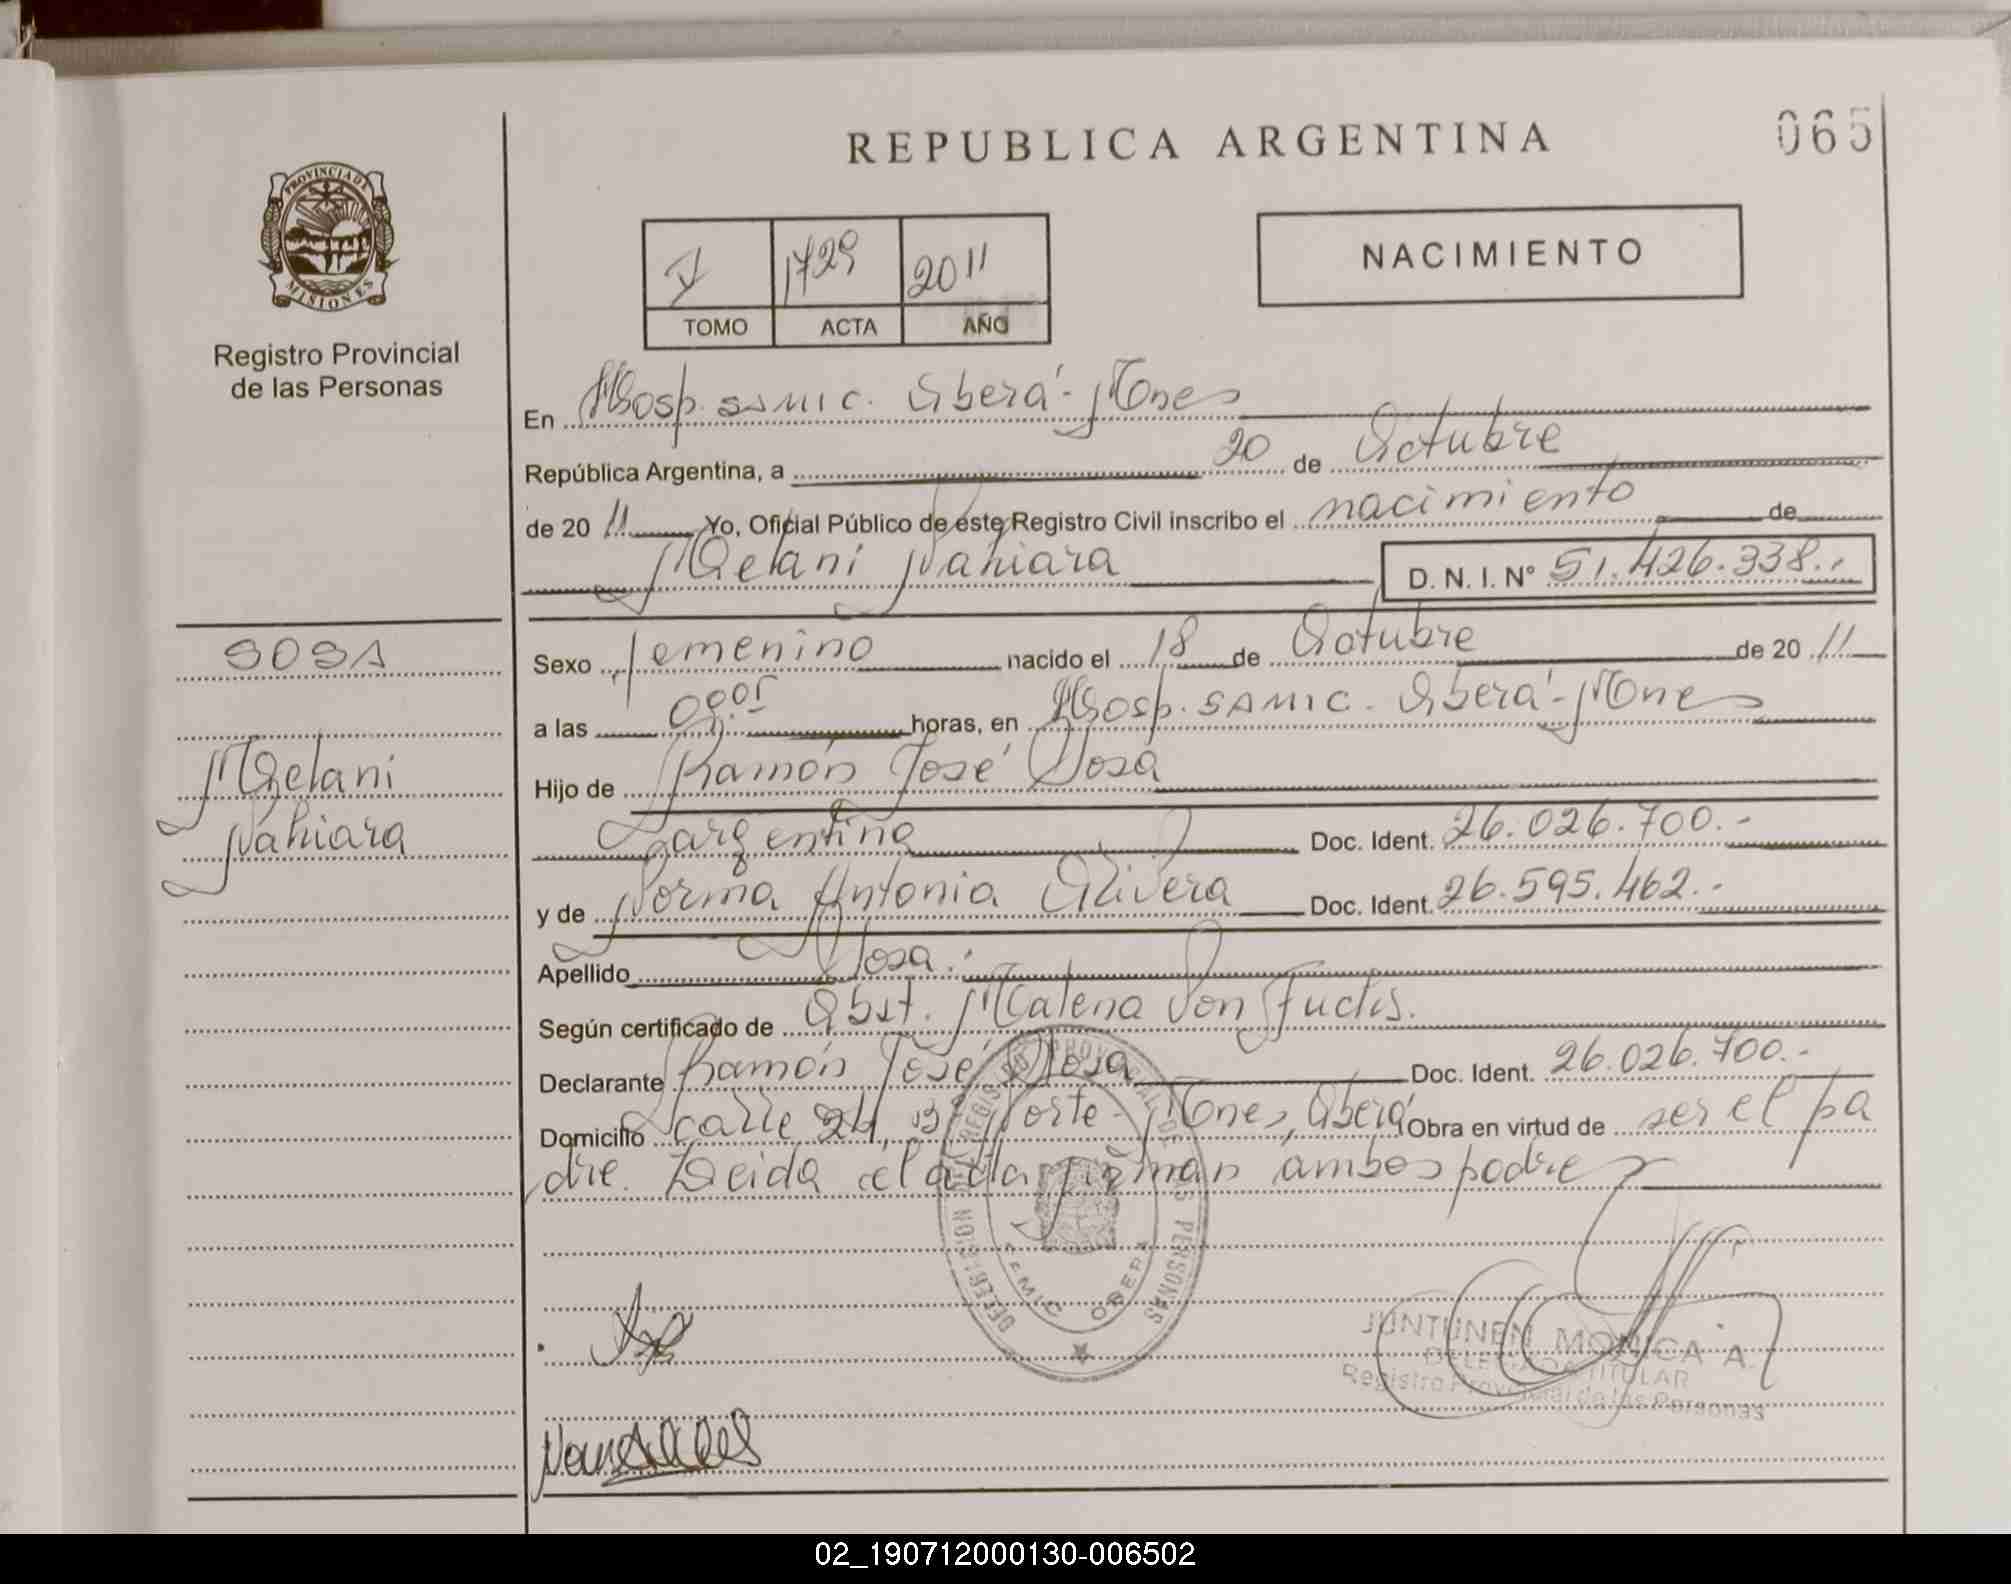 REPUBLICA ARGENTINA
065
PROVINCIA DE
MISIONES
Registro Provincial
de las Personas
V 1729 2011
TOMO ACTA AÑO
NACIMIENTO
En Hosp. SAMIC. Oberá - Mnes
República Argentina, a 20 de Octubre
de 20 11 Yo, Oficial Público de este Registro Civil inscribo el nacimiento de
Melani Nahiara D. N. I. Nº 51.426.338.-
SOSA
Melani
Nahiara
Sexo femenino nacido el 18 de Octubre de 20 11
a las 08.05 horas, en Hosp. SAMIC. Oberá - Mnes
Hijo de Ramón José Sosa
argentina Doc. Ident. 26.026.700.-
y de Norma Antonia Olivera Doc. Ident. 26.595.462.-
Apellido Sosa.-
Según certificado de Obst. Malena Von Fuchs.
Declarante Ramón José Sosa Doc. Ident. 26.026.700.-
Domicilio calle 26, B Norte - Mnes, Oberá Obra en virtud de ser el pa
dre. Leida el acta firman ambos padres
REGISTRO PROVINCIAL DE LAS PERSONAS
OBERA
JUNTUNEN MONICA A.
DELEGADA TITULAR
Registro Provincial de las Personas
02_190712000130-006502